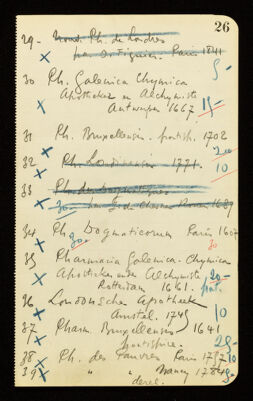 26
29 - Nouv. Ph. de Londres
par Figuier. Paris 1841
5-
30 Ph. Galenica Chymica
Apotheker en Alchymiste
Antwerpen 1667 15-
31 Ph. Bruxellensis. frontisp. 1702
32 Ph. Londinensis 1771. 10
33 Ph. des
par Paris 1689
34 Ph. Dogmaticorum Paris 1607
30
35 Pharmacia Galenica-Chymica
Apotheker ende Alchymiste 20-
Rotterdam 1661. front.
36 Londonsche Apotheek
Amstel. 1745 10
37 Pharm. Bruxellensis 1641
frontispice. 25-
38 Ph. des Pauvres Paris 1757 10
39 " " " Nancy 1784